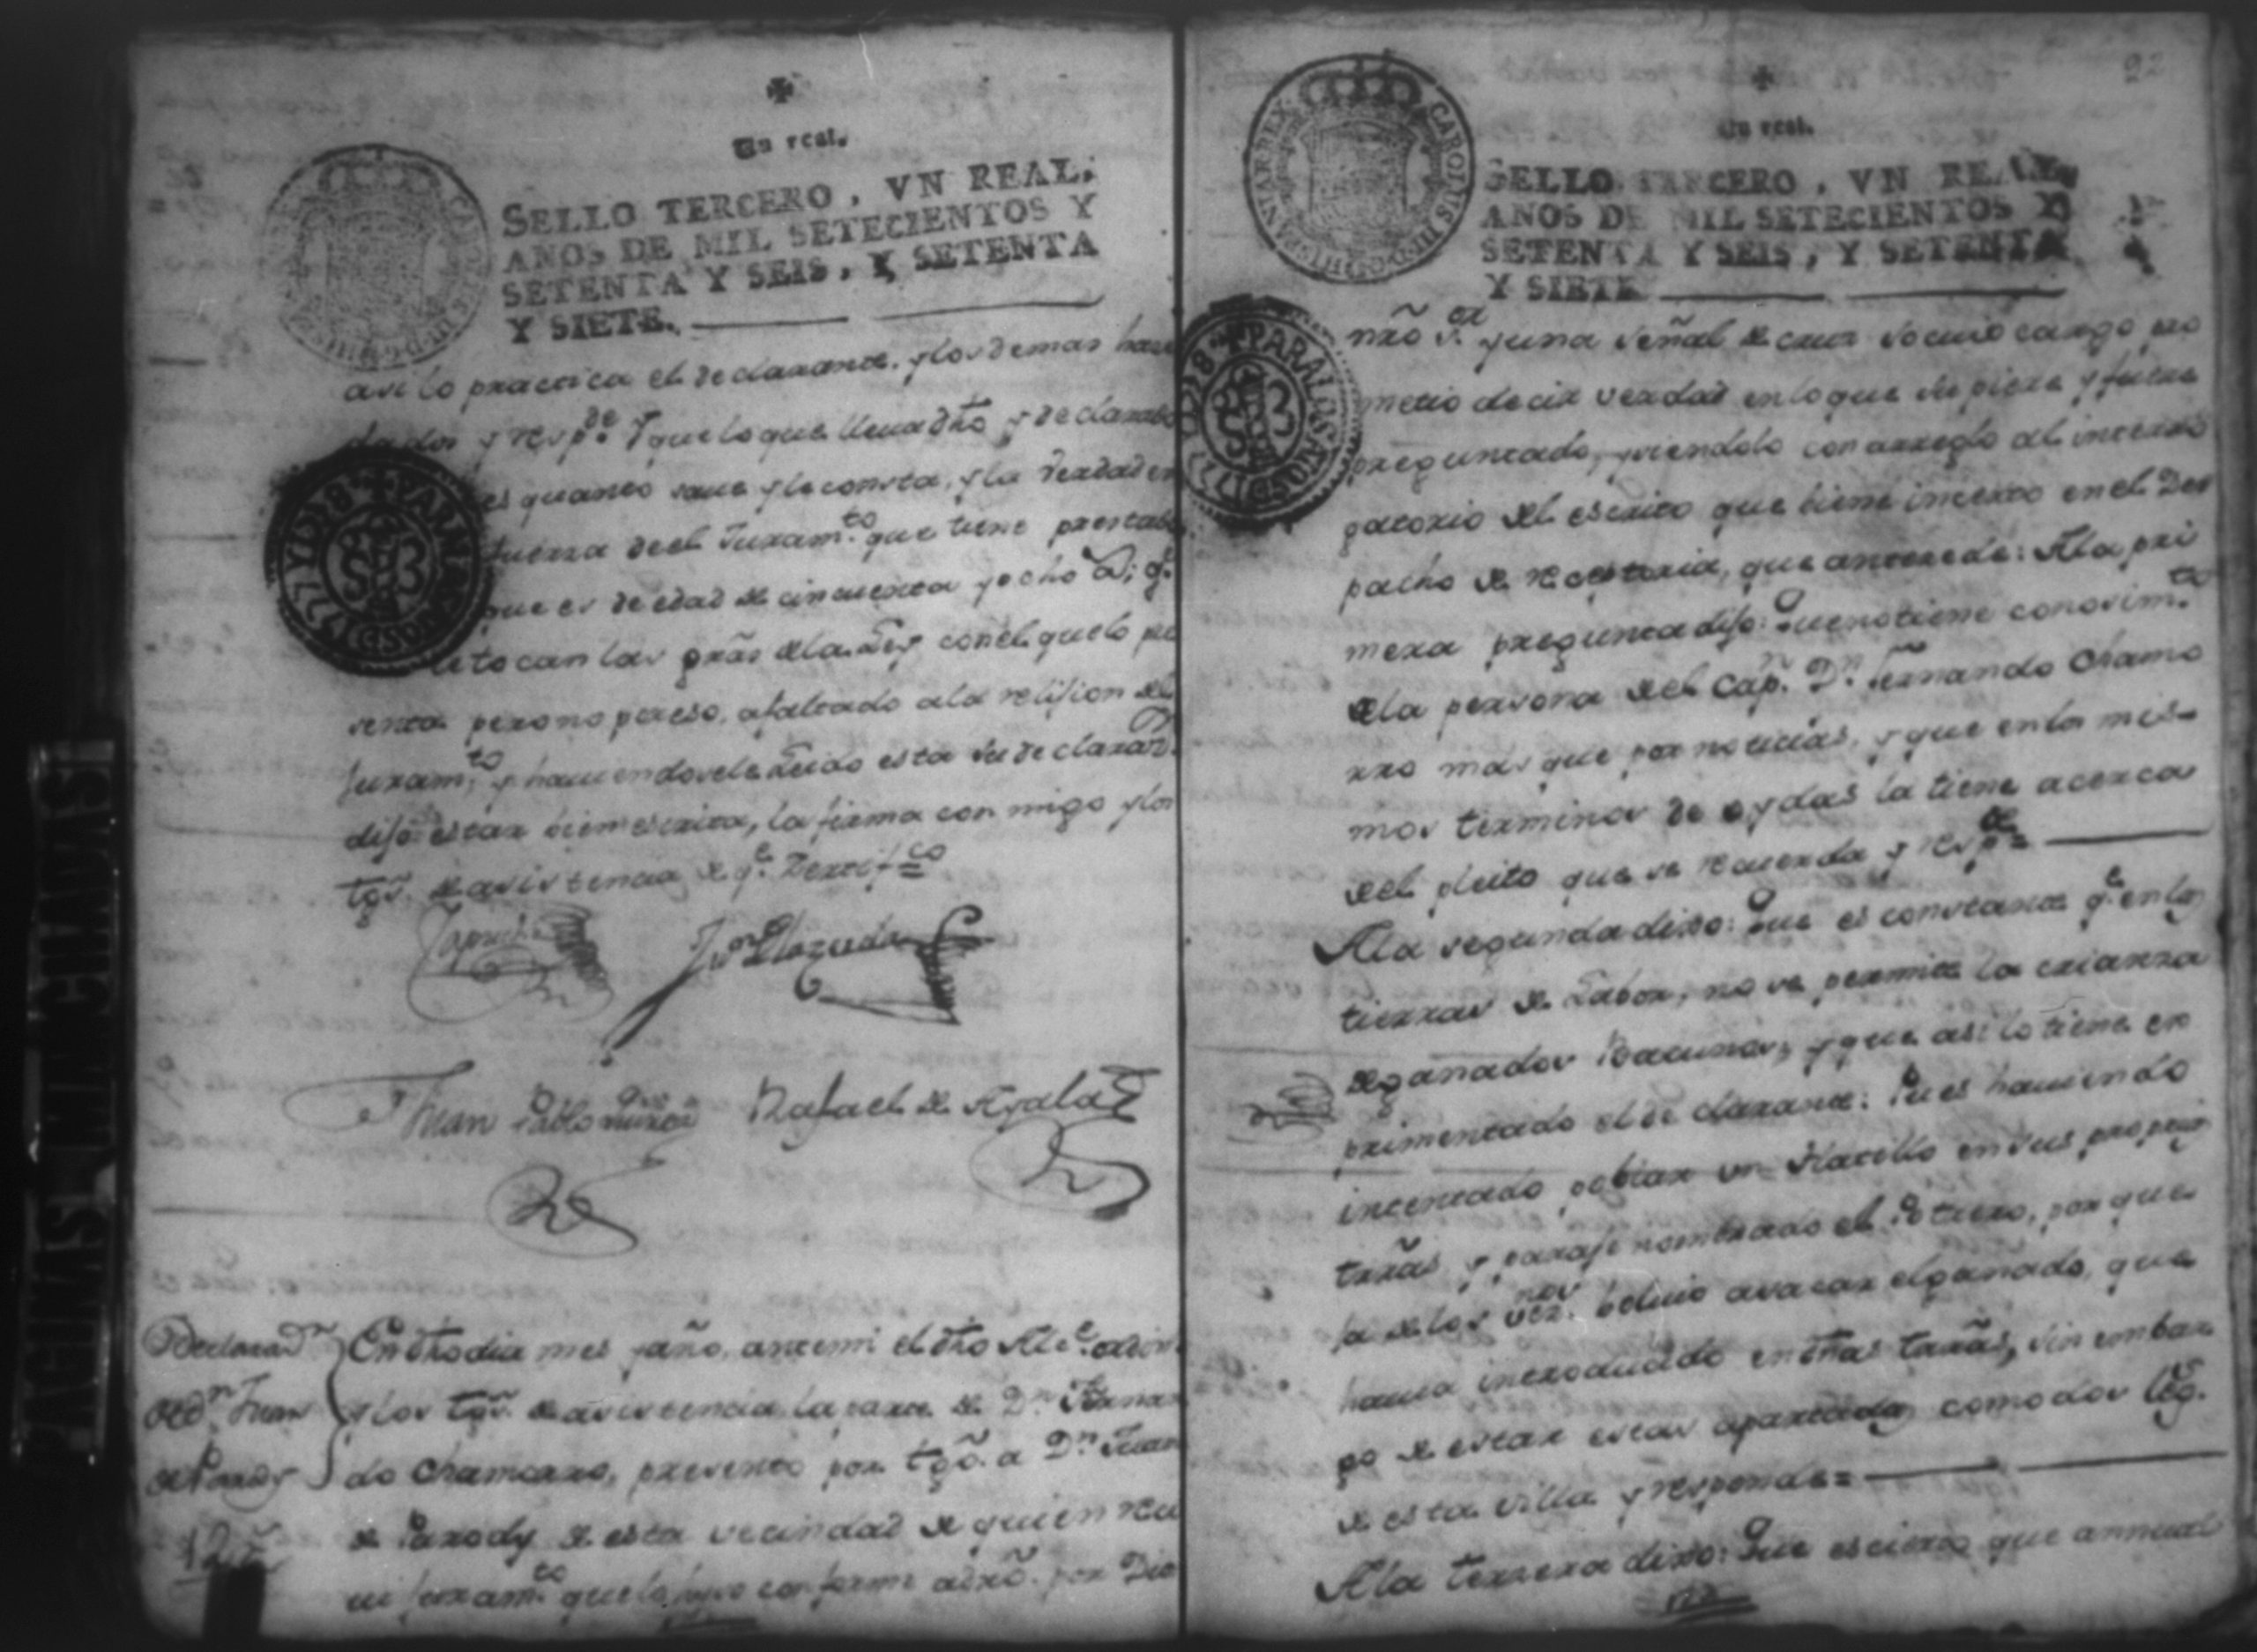 Un real.
SELLO TERCERO, VN REAL.
AÑOS DE MIL SETECIENTOS Y
SETENTA Y SEIS, Y SETENTA
Y SIETE.
asi lo practica el declarante, y los demas hazen
dados y resp.de Y que lo que lleua dho y declarado
es quanto saue y le consta, y la verdad en
fuerza de el Juram.to que tiene prestado
que es de edad de cinquenta y ocho a.s q.e
le tocan las grãs de la Ley con el que lo pre
senta pero no por eso, a faltado a la relijion del
juram.to y hauiendosele Leido esta su declaraz.n
dijo estar bien escrita, la firma con migo y los
tgõs. de asistencia de q.e Zertif.co
Juan Pablo Muñoz Rafael de Ayala
Declaraz.n
de d.n Juan
de Parody
En dho dia mes y año, ante mi el dho Alc.e ordin.
y los tgõs. de asistencia la parte de D.n Fernan
do Chamorro, presento por tgõ. a D.n Juan
de Parody de esta vecindad de quien reci
ui juram.to que lo hizo conforme a drõ. por Dios
22
Un real.
CAROLUS III D G HISPANIAR REX
SELLO TERCERO, VN REAL,
AÑOS DE MIL SETECIENTOS Y
SETENTA Y SEIS, Y SETENTA
Y SIETE
PARA LOS AÑOS D 1777 Y
nrõ s.or y una señal de cruz so cuio cargo pro
metio decir verdad en lo que supiere y fuere
preguntado, y siendolo con arreglo al interro
gatorio del escrito que biene inserto en el Des
pacho de receptoria, que antecede: A la pri
mera pregunta dijo: Que no tiene conosim.to
de la persona del Cap.n D.n Fernando Chamo
rro mas que por noticias, y que en los mis-
mos terminos de oydas la tiene acerca
del pleito que se recuerda y resp.de =
A la segunda dixo: Que es constante q.e en las
tierras de Labor, no se permite la crianza
de ganados Bacunos, y que asi lo tiene ex
primentado el declarante: Pues hauiendo
intentado poblar un Hatillo en sus propias
trrãs y paraje nombrado el Potrero, por que
ja de los vez.nos bolvio a sacar el ganado, que
hauia introducido en dhas tierras, sin embar
go de estar estas apartadas como dos leg.s
de esta villa y responde =
A la terzera dixo: Que es cierto que annual